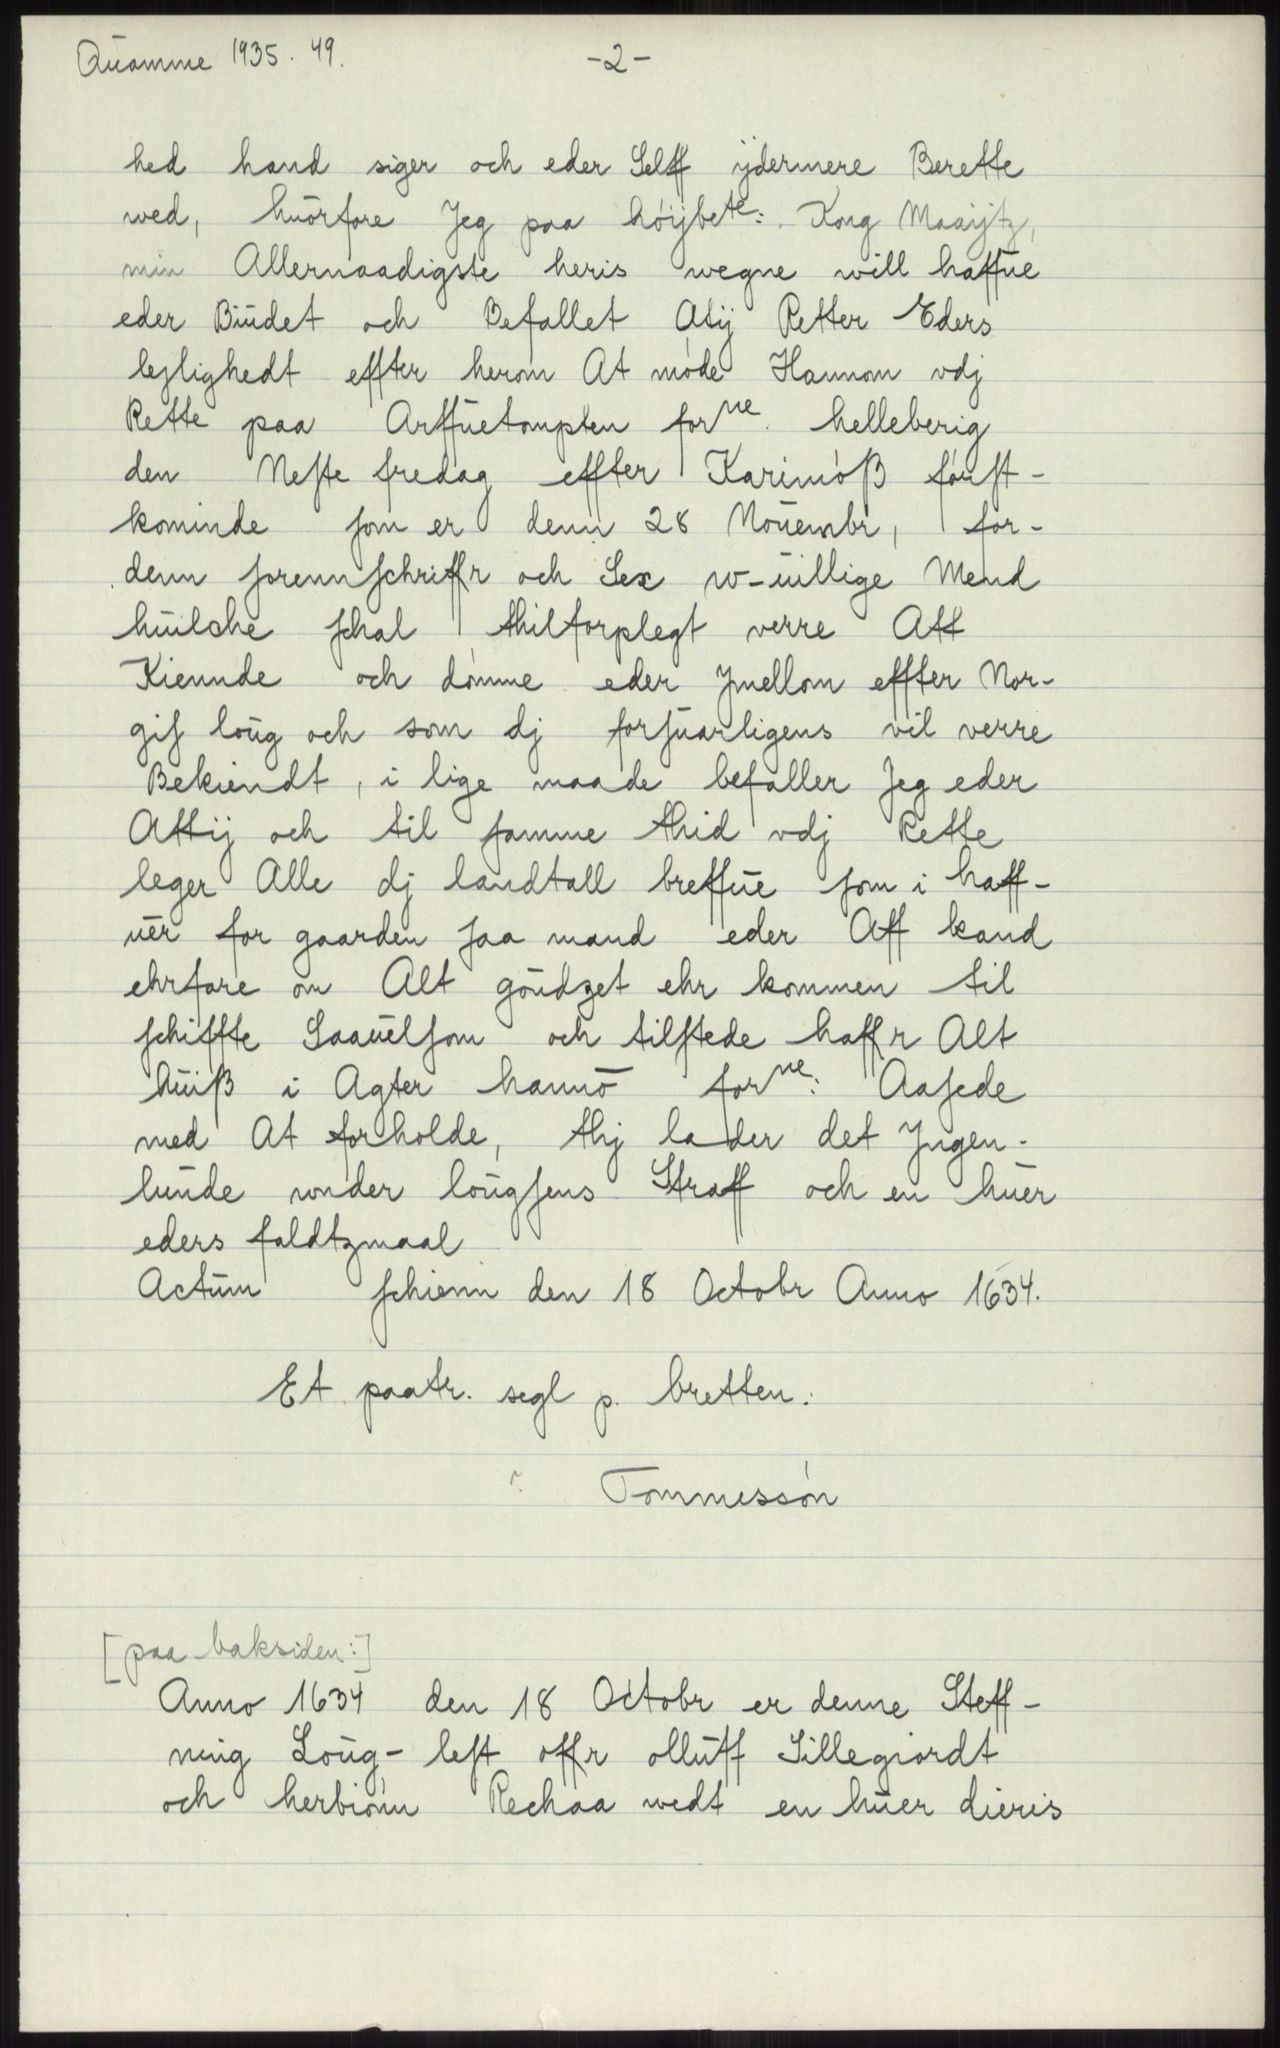 Quamme 1935. 49. -2-
hed hand siger och eder Selff ÿdermere Berette
wed, huorfore Jeg paa höijbete: Kong Maaijtz,
min Allernaadigste heris wegne will haffue
eder Biudet och Befallet Atij Retter Eders
lejlighedt effter herom At møde Hannom vdj
Rette paa Arffuetompten forne helleberig
den Neste fredag effter Karimöß först-
kominde som er denn 28 Nouembr, for-
denn sorennschriffr och Sex w-uillige Mend
huilche schal thilforplegt verre Att
Kiennde och dömme eder Jmellom effter Nor-
gis loug och som dj forsuarligens vil verre
Bekiendt, i lige maade befaller Jeg eder
Attij och til samme thid vdj Rette
leger Alle dj landtall breffue som i haff-
uer for gaarden saa mand eder Aff kand
ehrfare om Alt goudzet ehr kommen til
schiffte Saauelsom och tilstede haffr Alt
huiß i Agter hannō forne: Aasede
med At forholde, thj lader det Jngen-
lunde wnder lougsens Straff och en huer
eders faldtzmaal
Actum schienn den 18 Octobr Anno 1634.
Et paatr. segl p. bretten.
? Tommessön
[paa baksiden:]
Anno 1634 den 18 Octobr er denne Steff-
ning Loug-lest offr olluff Sillegiordt
och herbiönn Rechaa wedt en huer dieris